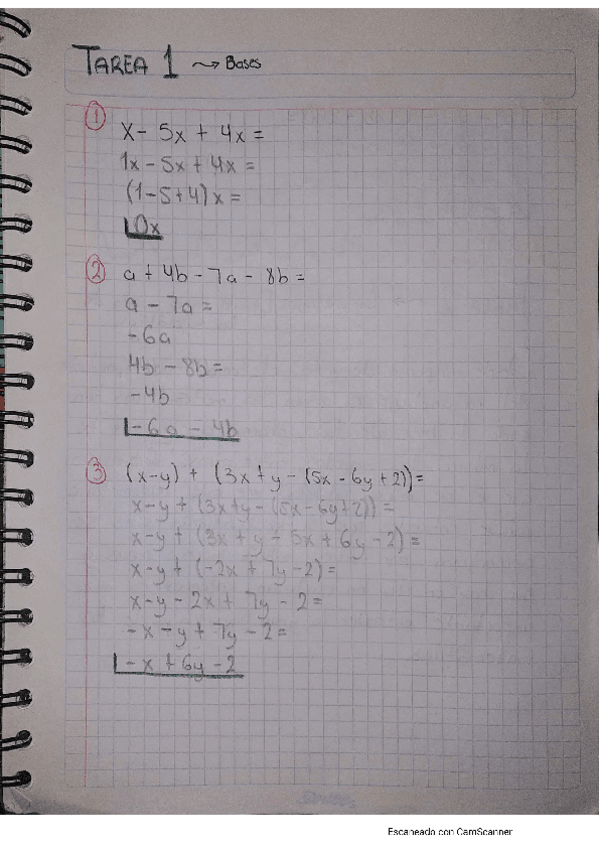 TAREA 1 ⤳ Bases
① x - 5x + 4x =
1x - 5x + 4x =
(1-5+4)x =
0x
② a + 4b - 7a - 8b =
a - 7a =
-6a
4b - 8b =
-4b
-6a - 4b
③ (x-y) + (3x+y - (5x - 6y + 2)) =
x-y + (3x+y-(5x-6y+2)) =
x-y + (3x + y - 5x + 6y - 2) =
x-y + (-2x + 7y - 2) =
x-y - 2x + 7y - 2 =
-x - y + 7y - 2 =
-x + 6y - 2
Escaneado con CamScanner